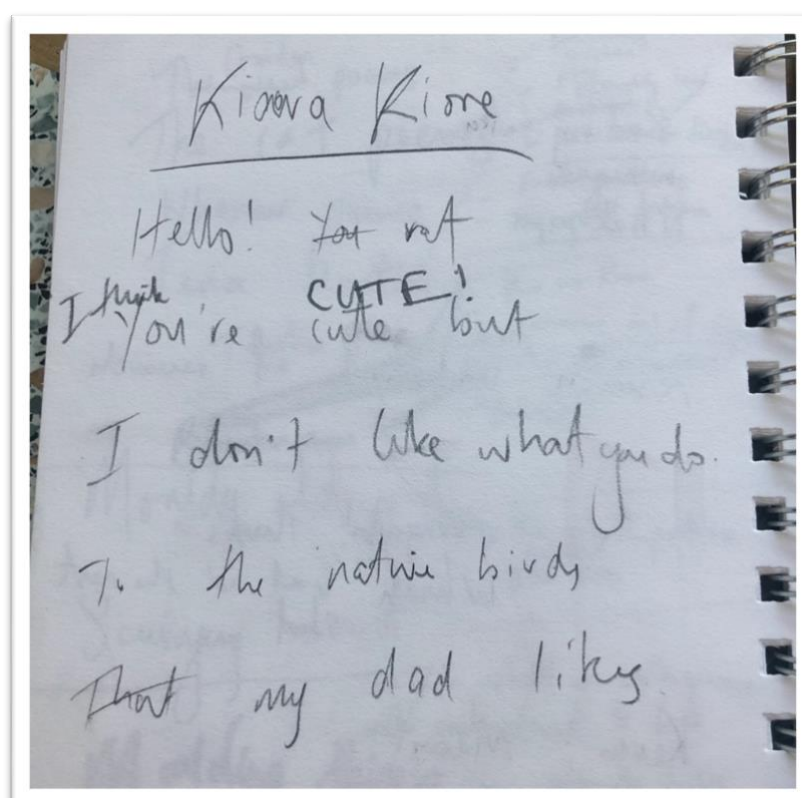 Kioova Kiore
Hello! You rat
I think CUTE!
You're cute but
I don't like what you do.
To the native birds
That my dad likes.